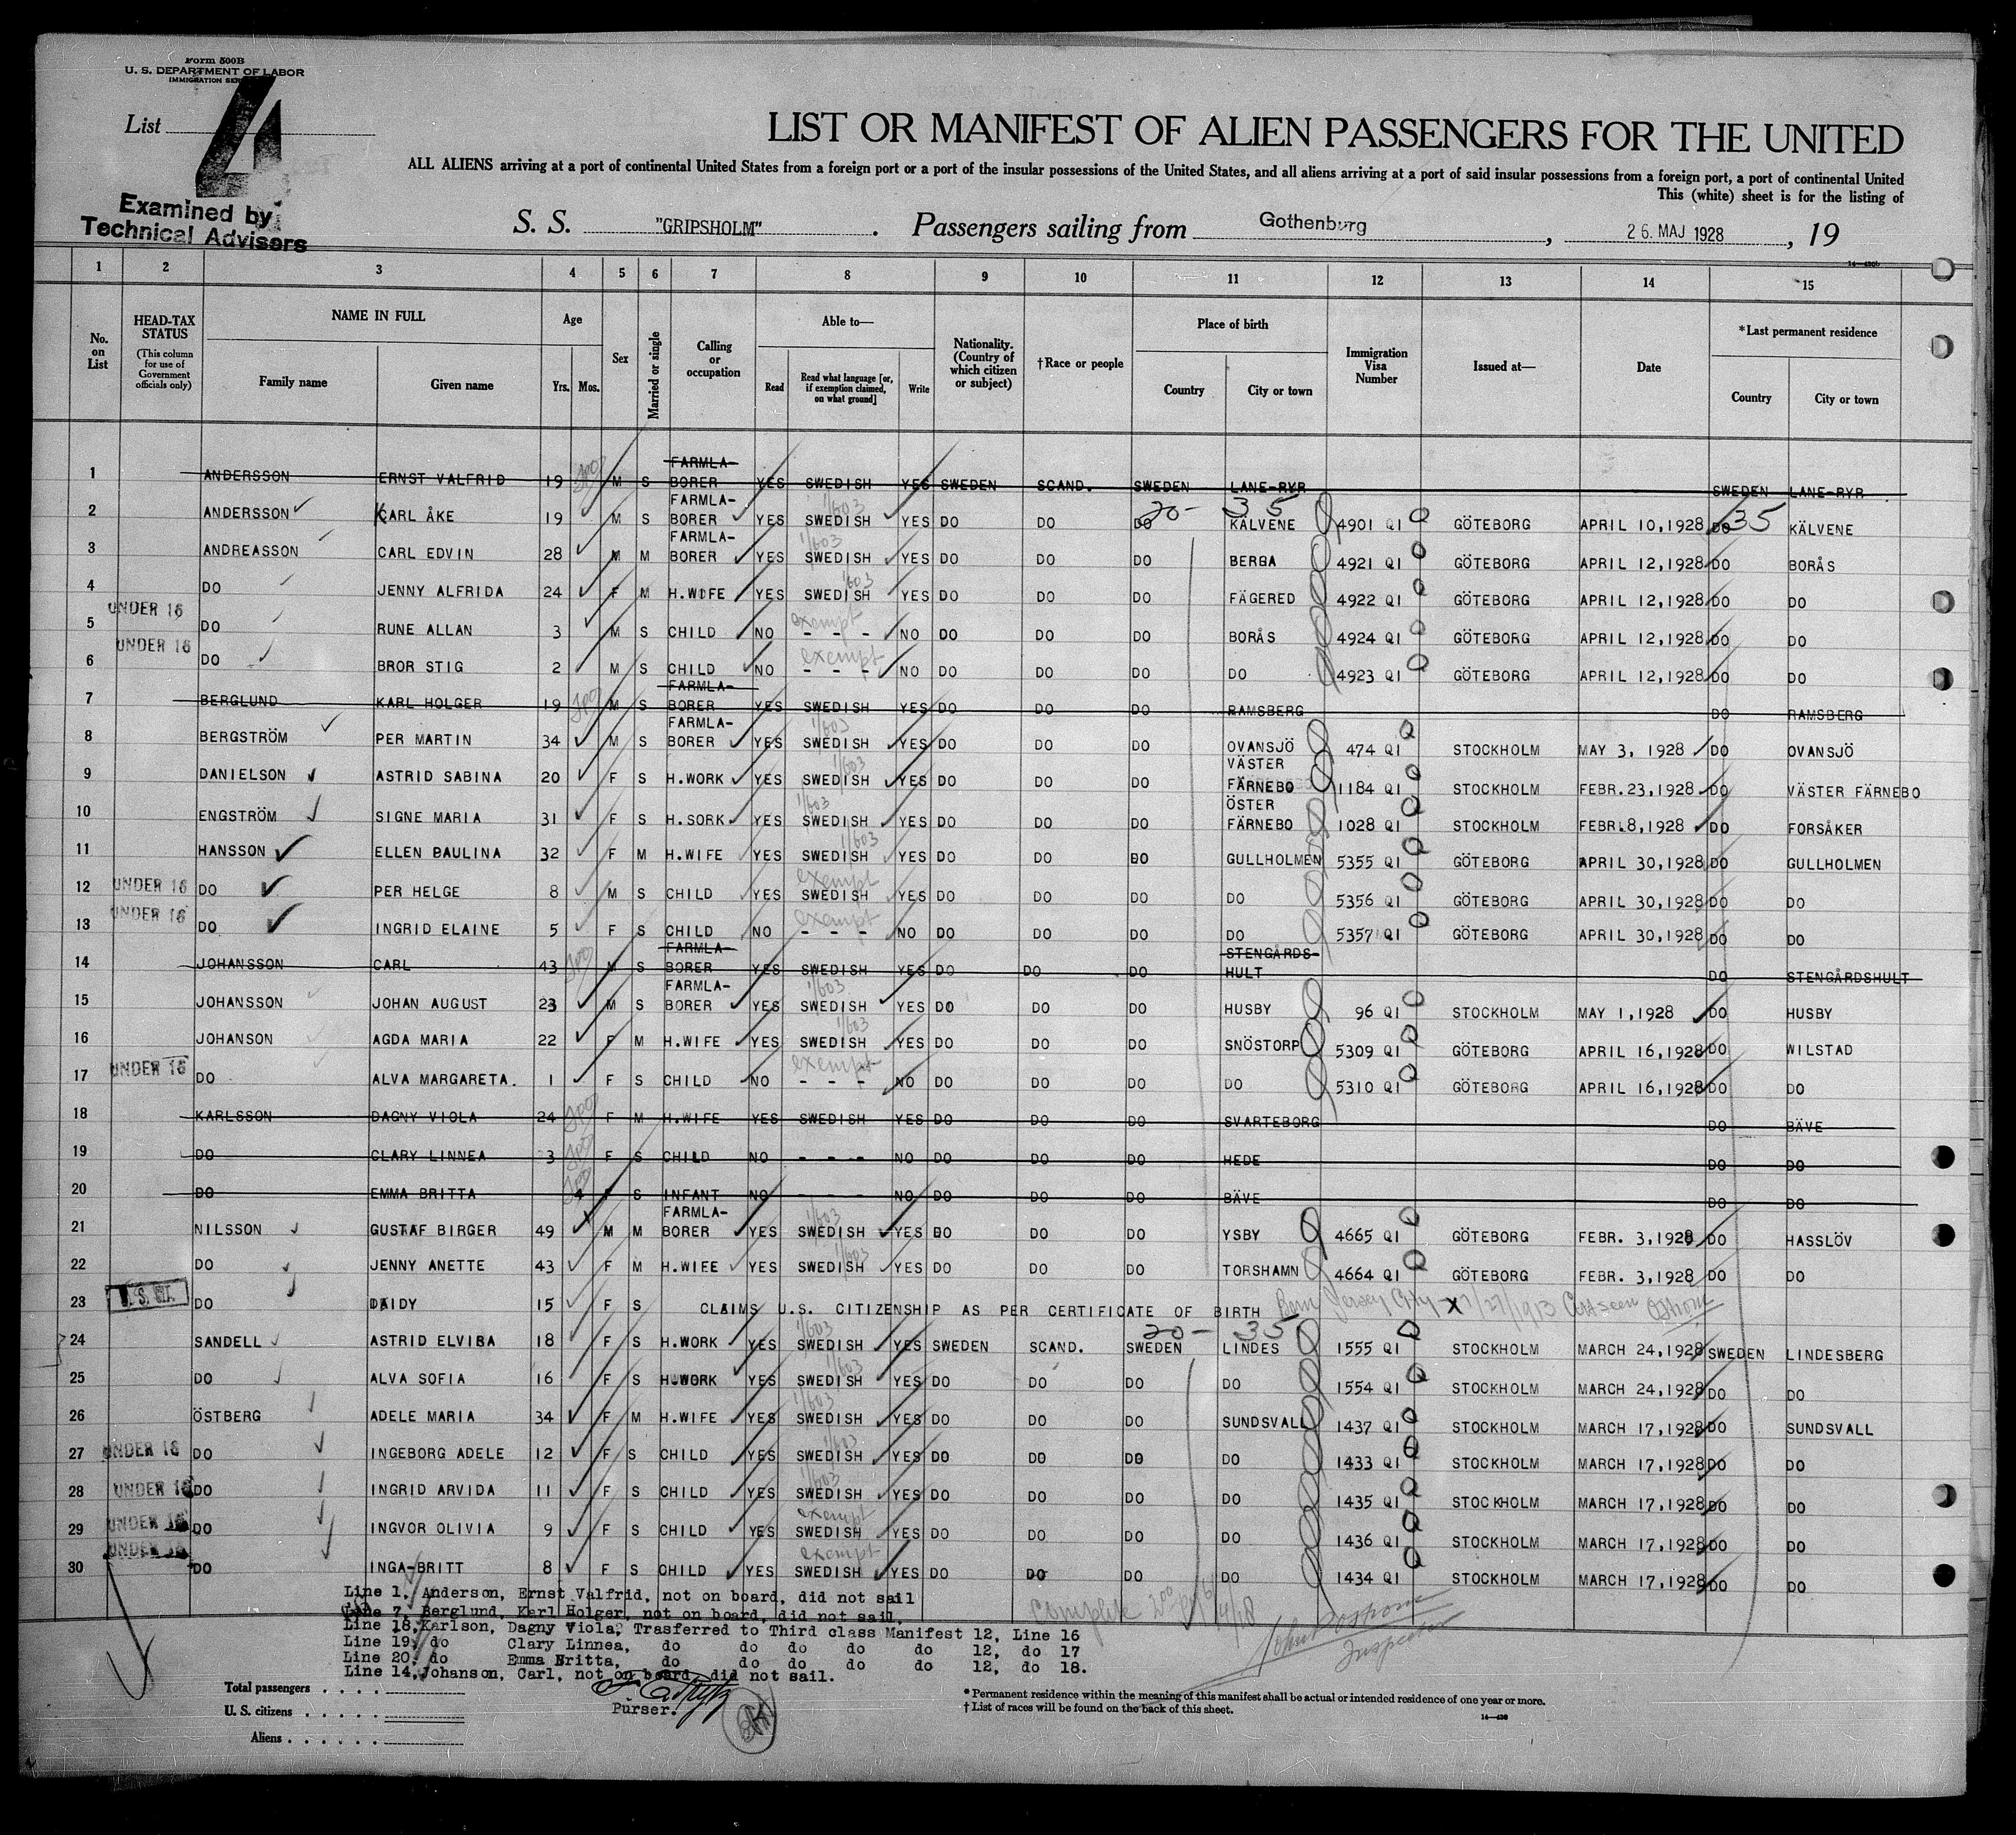 Form 500B
U. S. DEPARTMENT OF LABOR
IMMIGRATION
List 4
Examined by
Technical Advisers
LIST OR MANIFEST OF ALIEN PASSENGERS FOR THE UNITED
ALL ALIENS arriving at a port of continental United States from a foreign port or a port of the insular possessions of the United States, and all aliens arriving at a port of said insular possessions from a foreign port, a port of continental United
This (white) sheet is for the listing of
S. S. "GRIPSHOLM". Passengers sailing from Gothenburg, 26. MAJ 1928, 19
1 2 3 4 5 6 7 8 9 10 11 12 13 14 15
No. on List
HEAD-TAX STATUS (This column for use of Government officials only)
NAME IN FULL Family name Given name
Age Yrs. Mos.
Sex
Married or single
Calling or occupation
Able to— Read Read what language [or, if exemption claimed, on what ground] Write
Nationality. (Country of which citizen or subject)
†Race or people
Place of birth Country City or town
Immigration Visa Number
Issued at—
Date
*Last permanent residence Country City or town
1 ANDERSSON ERNST VALFRID 19 M S FARMLA-BORER YES SWEDISH YES SWEDEN SCAND. SWEDEN LANE-RYR SWEDEN LANE-RYR
20- 35
2 ANDERSSON KARL ÅKE 19 M S FARMLA-BORER YES SWEDISH YES DO DO DO KÄLVENE 4901 QI GÖTEBORG APRIL 10,1928 DO 35 KÄLVENE
3 ANDREASSON CARL EDVIN 28 M M FARMLA-BORER YES SWEDISH YES DO DO DO BERGA 4921 QI GÖTEBORG APRIL 12,1928 DO BORÅS
4 DO JENNY ALFRIDA 24 F M H.WIFE YES SWEDISH YES DO DO DO FÄGERED 4922 QI GÖTEBORG APRIL 12,1928 DO DO
5 UNDER 16 DO RUNE ALLAN 3 M S CHILD NO exempt - - - NO DO DO DO BORÅS 4924 QI GÖTEBORG APRIL 12,1928 DO DO
6 UNDER 16 DO BROR STIG 2 M S CHILD NO exempt - - - NO DO DO DO DO 4923 QI GÖTEBORG APRIL 12,1928 DO DO
7 BERGLUND KARL HOLGER 19 M S FARMLA-BORER YES SWEDISH YES DO DO DO RAMSBERG DO RAMSBERG
8 BERGSTRÖM PER MARTIN 34 M S FARMLA-BORER YES SWEDISH YES DO DO DO OVANSJÖ 474 QI STOCKHOLM MAY 3, 1928 DO OVANSJÖ
9 DANIELSON ASTRID SABINA 20 F S H.WORK YES SWEDISH YES DO DO DO VÄSTER FÄRNEBO 1184 QI STOCKHOLM FEBR.23,1928 DO VÄSTER FÄRNEBO
10 ENGSTRÖM SIGNE MARIA 31 F S H.SORK YES SWEDISH YES DO DO DO ÖSTER FÄRNEBO 1028 QI STOCKHOLM FEBR.8,1928 DO FORSÅKER
11 HANSSON ELLEN BAULINA 32 F M H.WIFE YES SWEDISH YES DO DO DO GULLHOLMEN 5355 QI GÖTEBORG APRIL 30,1928 DO GULLHOLMEN
12 UNDER 16 DO PER HELGE 8 M S CHILD YES exempt SWEDISH YES DO DO DO DO 5356 QI GÖTEBORG APRIL 30,1928 DO DO
13 UNDER 16 DO INGRID ELAINE 5 F S CHILD NO exempt - - - NO DO DO DO DO 5357 QI GÖTEBORG APRIL 30,1928 DO DO
14 JOHANSSON CARL 43 M S FARMLA-BORER YES SWEDISH YES DO DO DO STENGÅRDS-HULT DO STENGÅRDSHULT
15 JOHANSSON JOHAN AUGUST 23 M S FARMLA-BORER YES SWEDISH YES DO DO DO HUSBY 96 QI STOCKHOLM MAY 1,1928 DO HUSBY
16 JOHANSON AGDA MARIA 22 F M H.WIFE YES SWEDISH YES DO DO DO SNÖSTORP 5309 QI GÖTEBORG APRIL 16,1928 DO WILSTAD
17 UNDER 16 DO ALVA MARGARETA. 1 F S CHILD NO exempt - - - NO DO DO DO DO 5310 QI GÖTEBORG APRIL 16,1928 DO DO
18 KARLSSON DAGNY VIOLA 24 F M H.WIFE YES SWEDISH YES DO DO DO SVARTEBORG DO BÄVE
19 DO CLARY LINNEA 3 F S CHILD NO - - - NO DO DO DO HEDE DO DO
20 DO EMMA BRITTA 4 F S INFANT NO - - - NO DO DO DO BÄVE DO DO
21 NILSSON GUSTAF BIRGER 49 M M FARMLA-BORER YES SWEDISH YES DO DO DO YSBY 4665 QI GÖTEBORG FEBR. 3,1928 DO HASSLÖV
22 DO JENNY ANETTE 43 F M H.WIFE YES SWEDISH YES DO DO DO TORSHAMN 4664 QI GÖTEBORG FEBR. 3,1928 DO DO
23 U.S. CIT. DO DAIDY 15 F S CLAIMS U.S. CITIZENSHIP AS PER CERTIFICATE OF BIRTH Born Jersey City 1/27/1913 Cert seen
20- 35
24 SANDELL ASTRID ELVIRA 18 F S H.WORK YES SWEDISH YES SWEDEN SCAND. SWEDEN LINDES 1555 QI STOCKHOLM MARCH 24,1928 SWEDEN LINDESBERG
25 DO ALVA SOFIA 16 F S H.WORK YES SWEDISH YES DO DO DO DO 1554 QI STOCKHOLM MARCH 24,1928 DO DO
26 ÖSTBERG ADELE MARIA 34 F M H.WIFE YES SWEDISH YES DO DO DO SUNDSVALL 1437 QI STOCKHOLM MARCH 17,1928 DO SUNDSVALL
27 UNDER 16 DO INGEBORG ADELE 12 F S CHILD YES SWEDISH YES DO DO DO DO 1433 QI STOCKHOLM MARCH 17,1928 DO DO
28 UNDER 16 DO INGRID ARVIDA 11 F S CHILD YES SWEDISH YES DO DO DO DO 1435 QI STOCKHOLM MARCH 17,1928 DO DO
29 UNDER 16 DO INGVOR OLIVIA 9 F S CHILD YES exempt SWEDISH YES DO DO DO DO 1436 QI STOCKHOLM MARCH 17,1928 DO DO
30 UNDER 16 DO INGA-BRITT 8 F S CHILD YES exempt SWEDISH YES DO DO DO DO 1434 QI STOCKHOLM MARCH 17,1928 DO DO
Line 1, Anderson, Ernst Valfrid, not on board, did not sail
Line 7, Berglund, Karl Holger, not on board, did not sail.
Line 18, Karlson, Dagny Viola, Trasferred to Third class Manifest 12, Line 16
Line 19, do Clary Linnea, do do do do do 12, do 17
Line 20, do Emma Britta, do do do do do 12, do 18.
Line 14, Johanson, Carl, not on board, did not sail.
Complete
Inspector
Purser.
Total passengers
U. S. citizens
Aliens
* Permanent residence within the meaning of this manifest shall be actual or intended residence of one year or more.
† List of races will be found on the back of this sheet.